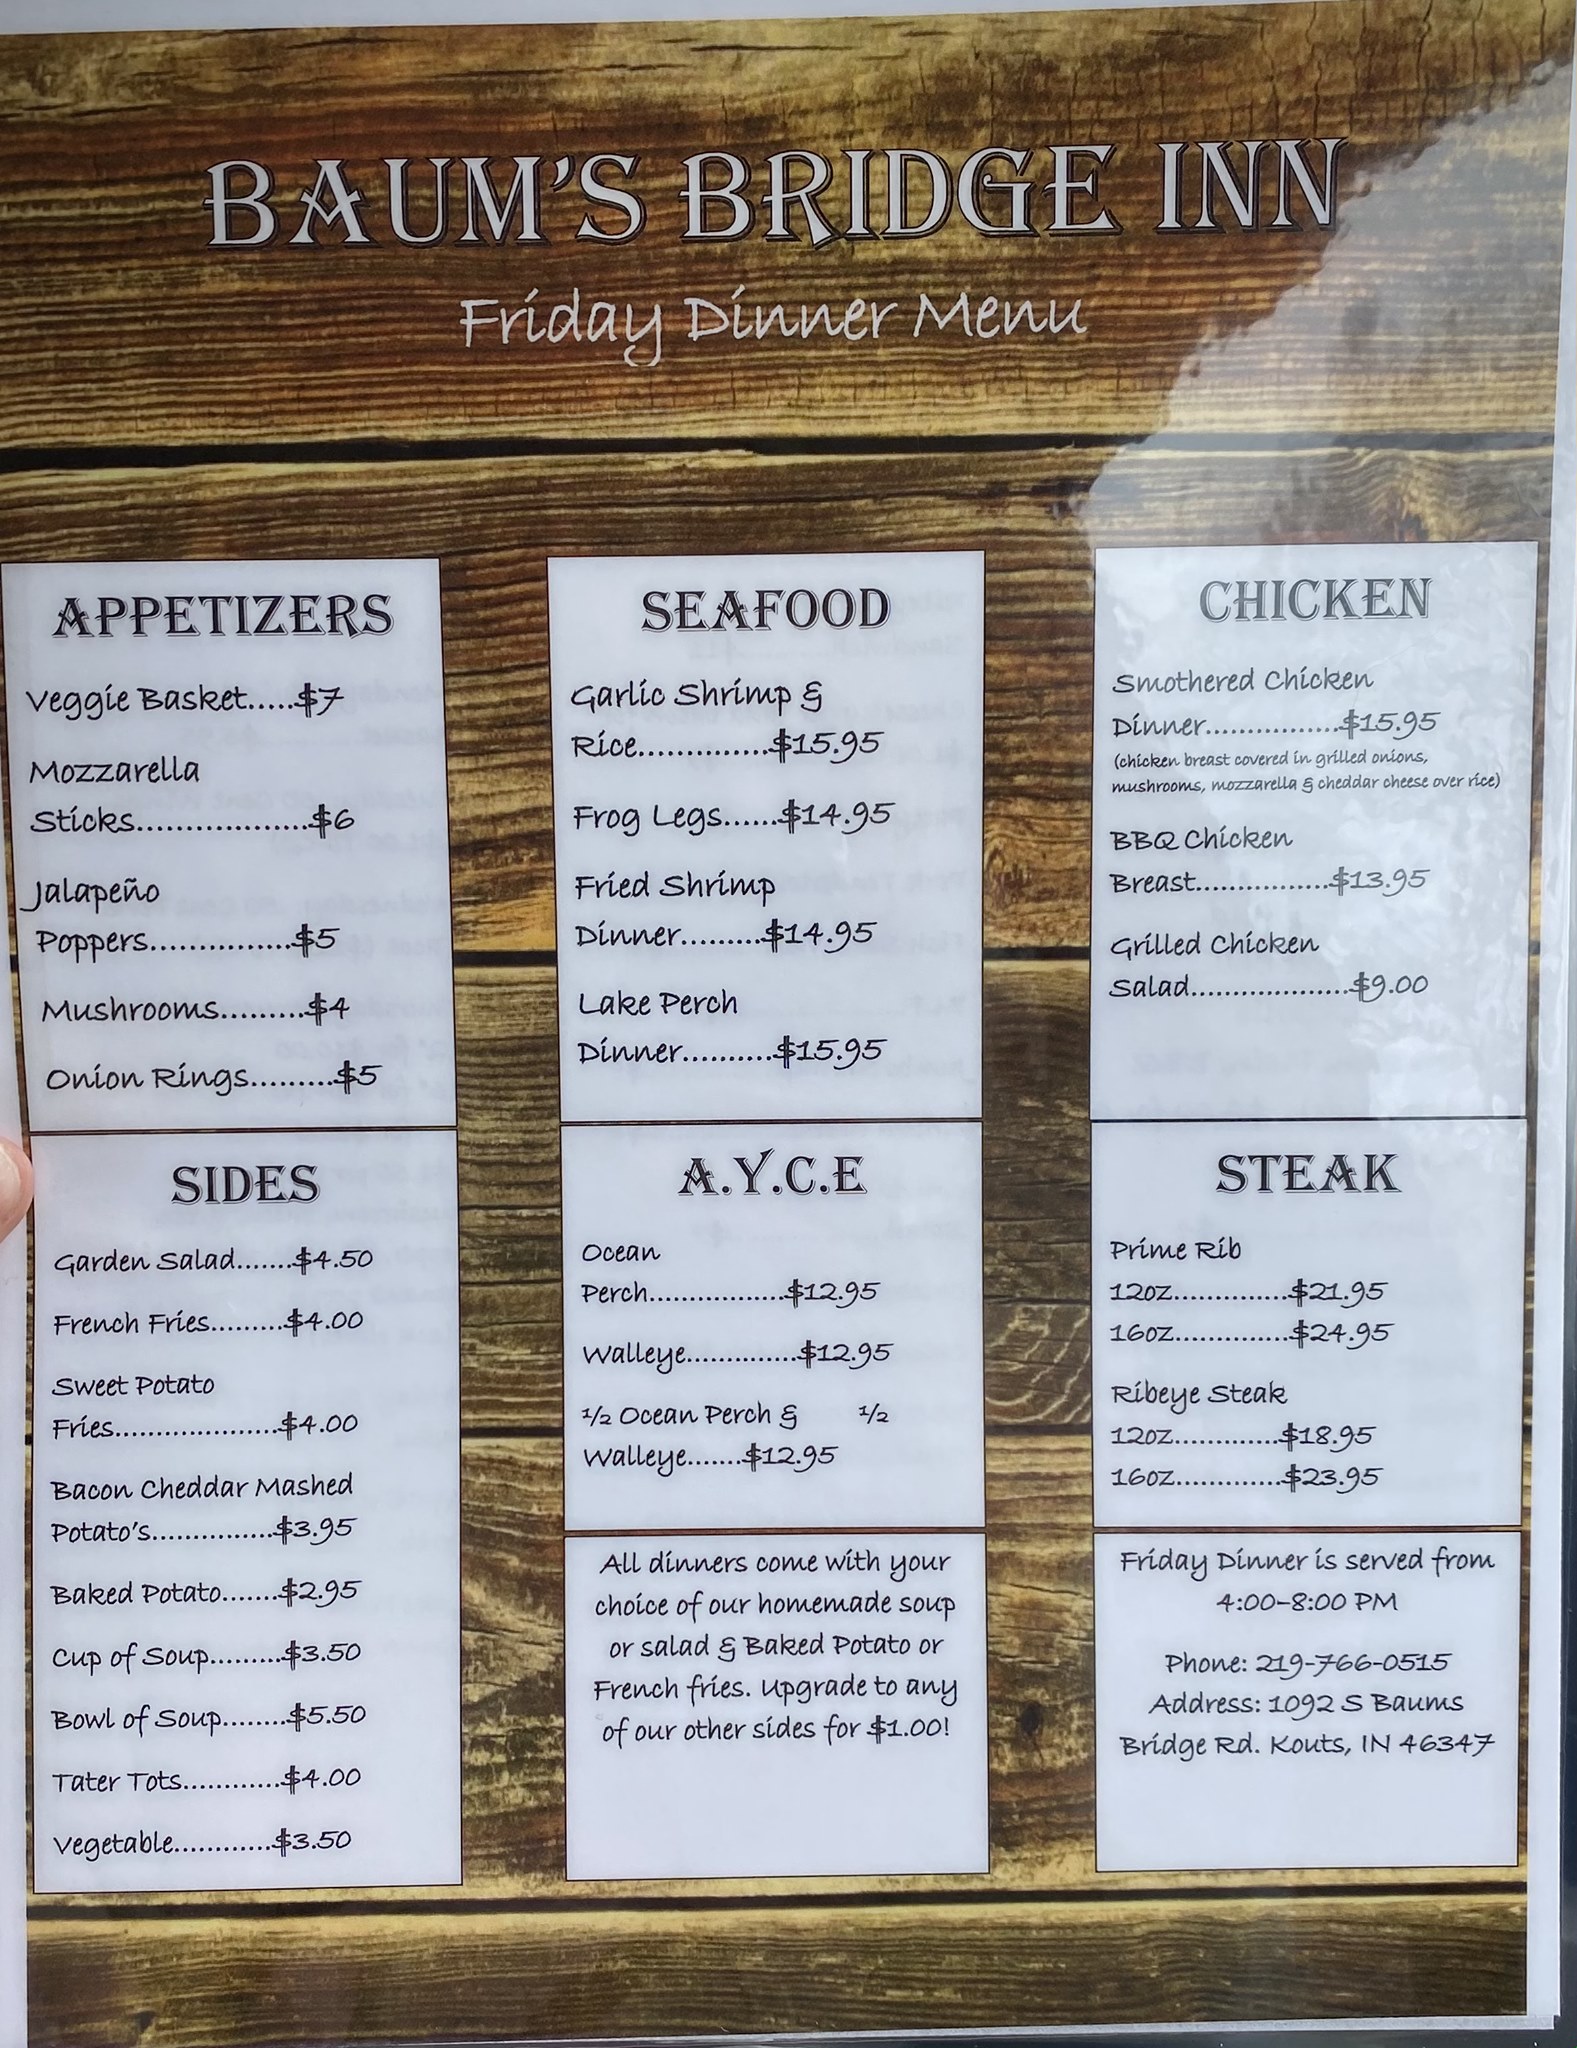 BAUM'S BRIDGE INN
Friday Dinner Menu
APPETIZERS
Veggie Basket.....$7
Mozzarella
Sticks..................$6
Jalapeño
Poppers...............$5
Mushrooms.........$4
Onion Rings.........$5
SEAFOOD
Garlic Shrimp &
Rice..............$15.95
Frog Legs......$14.95
Fried Shrimp
Dinner.........$14.95
Lake Perch
Dinner..........$15.95
CHICKEN
Smothered Chicken
Dinner................$15.95
(chicken breast covered in grilled onions,
mushrooms, mozzarella & cheddar cheese over rice)
BBQ Chicken
Breast................$13.95
Grilled Chicken
Salad...................$9.00
SIDES
Garden Salad.......$4.50
French Fries.........$4.00
Sweet Potato
Fries....................$4.00
Bacon Cheddar Mashed
Potato's...............$3.95
Baked Potato.......$2.95
Cup of Soup.........$3.50
Bowl of Soup........$5.50
Tater Tots............$4.00
Vegetable............$3.50
A.Y.C.E
Ocean
Perch.................$12.95
Walleye..............$12.95
1/2 Ocean Perch & 1/2
Walleye.......$12.95
STEAK
Prime Rib
12oz..............$21.95
16oz..............$24.95
Ribeye Steak
12oz.............$18.95
16oz.............$23.95
All dinners come with your
choice of our homemade soup
or salad & Baked Potato or
French fries. Upgrade to any
of our other sides for $1.00!
Friday Dinner is served from
4:00-8:00 PM
Phone: 219-766-0515
Address: 1092 S Baums
Bridge Rd. Kouts, IN 46347